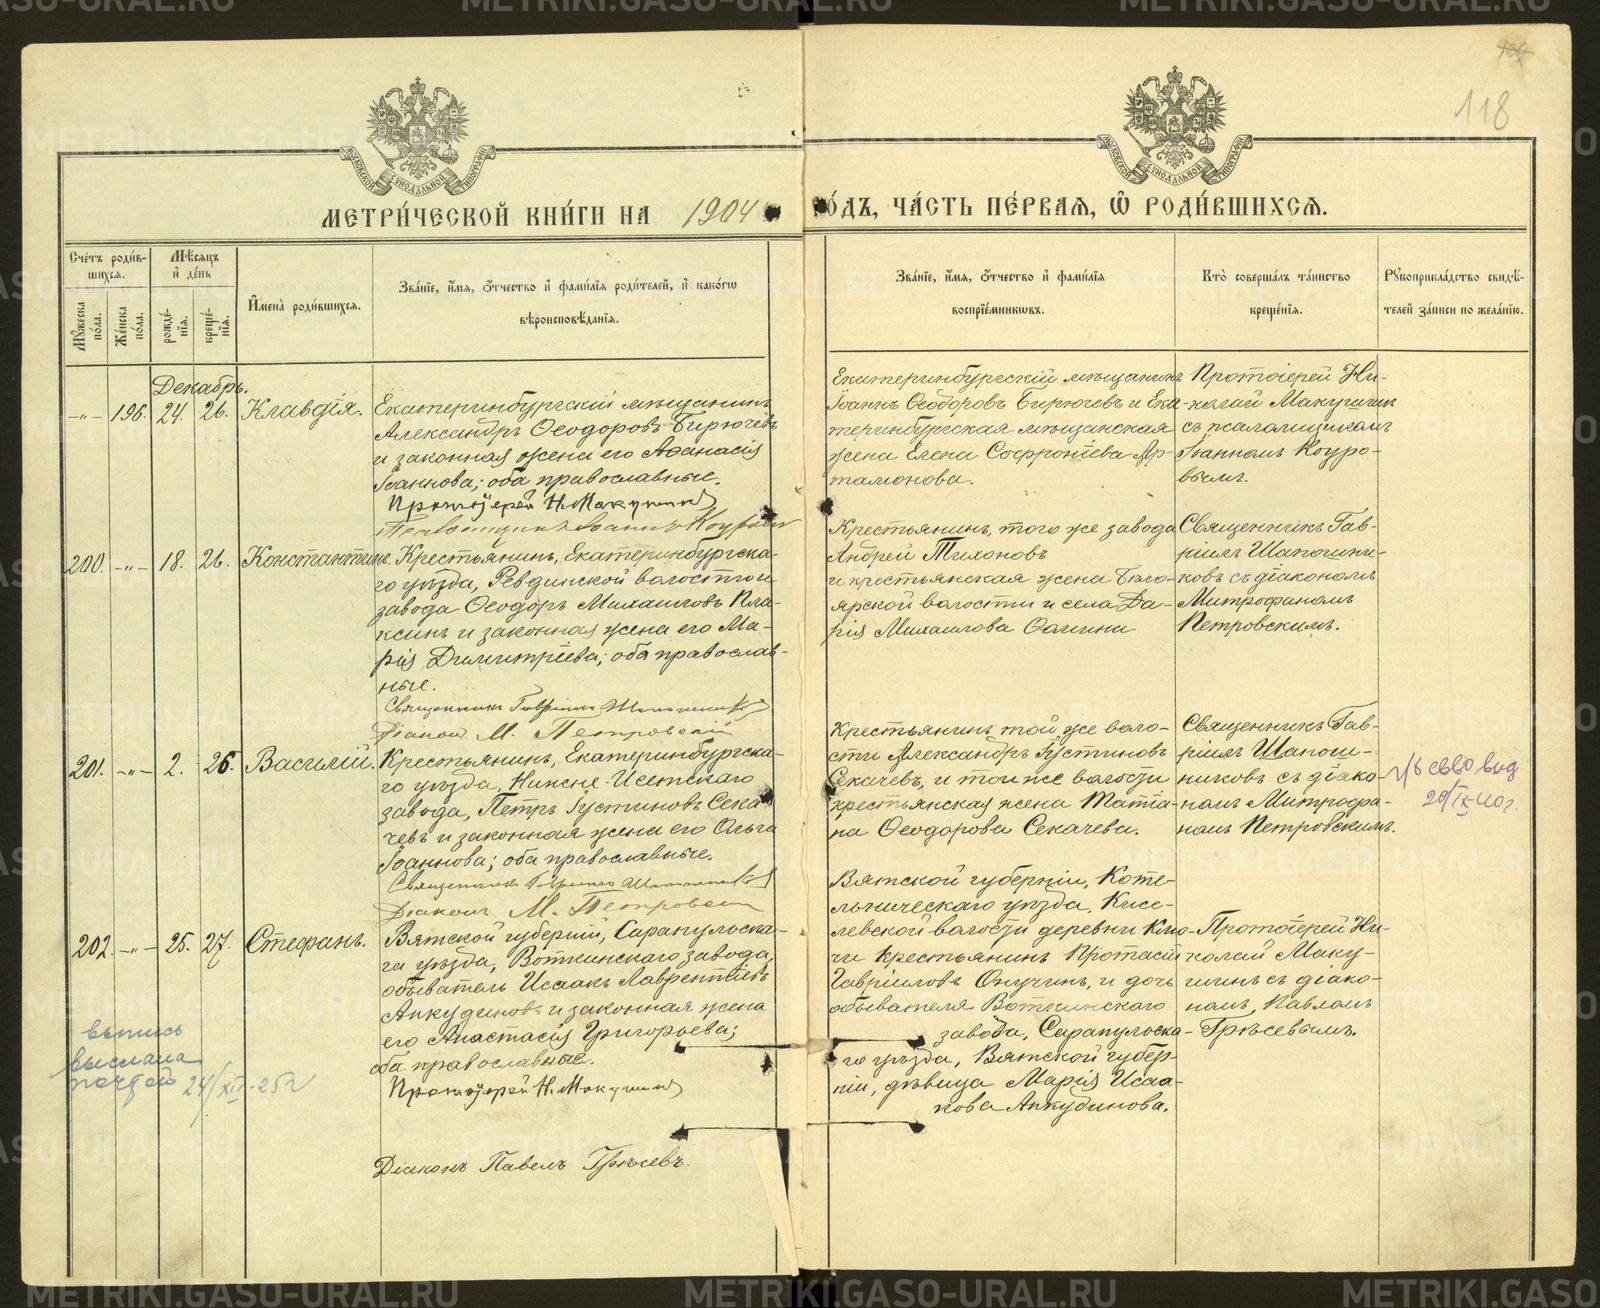 118
МОСКОВСКОЙ СѴНОДАЛЬНОЙ ТИПОГРАФІИ
МОСКОВСКОЙ СѴНОДАЛЬНОЙ ТИПОГРАФІИ
МЕТРИ́ЧЕСКОЙ КНИ́ГИ НА 1904 ГО́ДЪ, ЧА́СТЬ ПЕ́РВАЯ, Ѿ РОДИ́ВШИХСЯ.
Сче́тъ роди́в-
шихся.
Мꙋ́жеска по́ла.
Же́нска по́ла.
Мѣ́сяцъ
и҆ де́нь
рожде́-
нїя.
креще́-
нїя.
И҆мена̀ роди́вшихся.
Зва́нїе, и҆́мя, ѻ҆́тчество и҆ фами́лїя роди́телей, и҆ како́гѡ
вѣроисповѣ́данїя.
Зва́нїе, и҆́мя, ѻ҆́тчество и҆ фами́лїя
воспрїе́мникѡвъ.
Кто̀ соверша́лъ та́инство
креще́нїя.
Рꙋкоприкла́дство свидѣ́-
телей за́писи по жела́нїю.
Декабрь.
—„— 196. 24. 26. Клавдія.
Екатеринбургскій мѣщанинъ
Александръ Ѳеодоровъ Бирючевъ
и законная жена его Аѳанасія
Іоаннова; оба православные.
Протоіерей Н. Макушинъ
Псаломщикъ Іоаннъ Коуровъ
Екатеринбургскій мѣщанинъ
Іоаннъ Ѳеодоровъ Бирючевъ и Ека-
теринбургская мѣщанская
жена Елена Софроніева Ар-
тамонова.
Протоіерей Ни-
колай Макушинъ
съ псаломщикомъ
Іоанномъ Коуро-
вымъ.
200. —„— 18. 26. Константинъ.
Крестьянинъ, Екатеринбургска-
го уѣзда, Ревдинской волости и
завода Ѳеодоръ Михаиловъ Пла-
ксинъ и законная жена его Ма-
рія Димитріева; оба православ-
ные.
Священникъ Гавріилъ Шапошниковъ
Діаконъ М. Петровскій
Крестьянинъ, того же завода
Андрей Тихоновъ
и крестьянская жена Бѣло-
ярской волости и села Да-
рія Михаилова
Священникъ Гав-
ріилъ Шапошни-
ковъ съ діакономъ
Митрофаномъ
Петровскимъ.
201. —„— 2. 26. Василій.
Крестьянинъ, Екатеринбургска-
го уѣзда, Нижне-Исетскаго
завода, Петръ Іустиновъ Сека-
чевъ и законная жена его Ольга
Іоаннова; оба православные.
Священникъ Гавріилъ Шапошниковъ
Діаконъ М. Петровскій
Крестьянинъ той же воло-
сти Александръ Іустиновъ
Секачевъ, и той же волости
крестьянская жена Татіа-
на Ѳеодорова Секачева.
Священникъ Гав-
ріилъ Шапош-
никовъ съ діако-
номъ Митрофа-
номъ Петровскимъ.
выд
29/IX 40 г.
202. —„— 25. 27. Стефанъ.
Вятской губерніи, Сарапульска-
го уѣзда, Воткинскаго завода,
обыватель Исаакъ Лаврентіевъ
Анкудиновъ и законная жена
его Анастасія Григорьева;
оба православные.
Протоіерей Н. Макушинъ
Діаконъ Павелъ Грѣсевъ.
Вятской губерніи, Коте-
льническаго уѣзда, Кисе-
левской волости деревни
крестьянинъ Протасій
Гавріиловъ Онучинъ, и дочь
обывателя Воткинскаго
завода, Сарапульска-
го уѣзда, Вятской губер-
ніи, дѣвица Марія Исаа-
кова Анкудинова.
Протоіерей Ни-
колай Маку-
шинъ съ діако-
номъ Павломъ
Грѣсевымъ.
выпись
выслана
почтой 24/XII-25 г